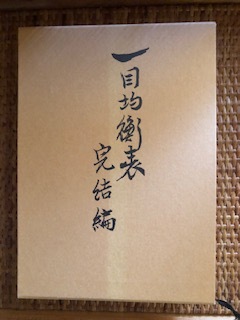 一目均衡表
完结編